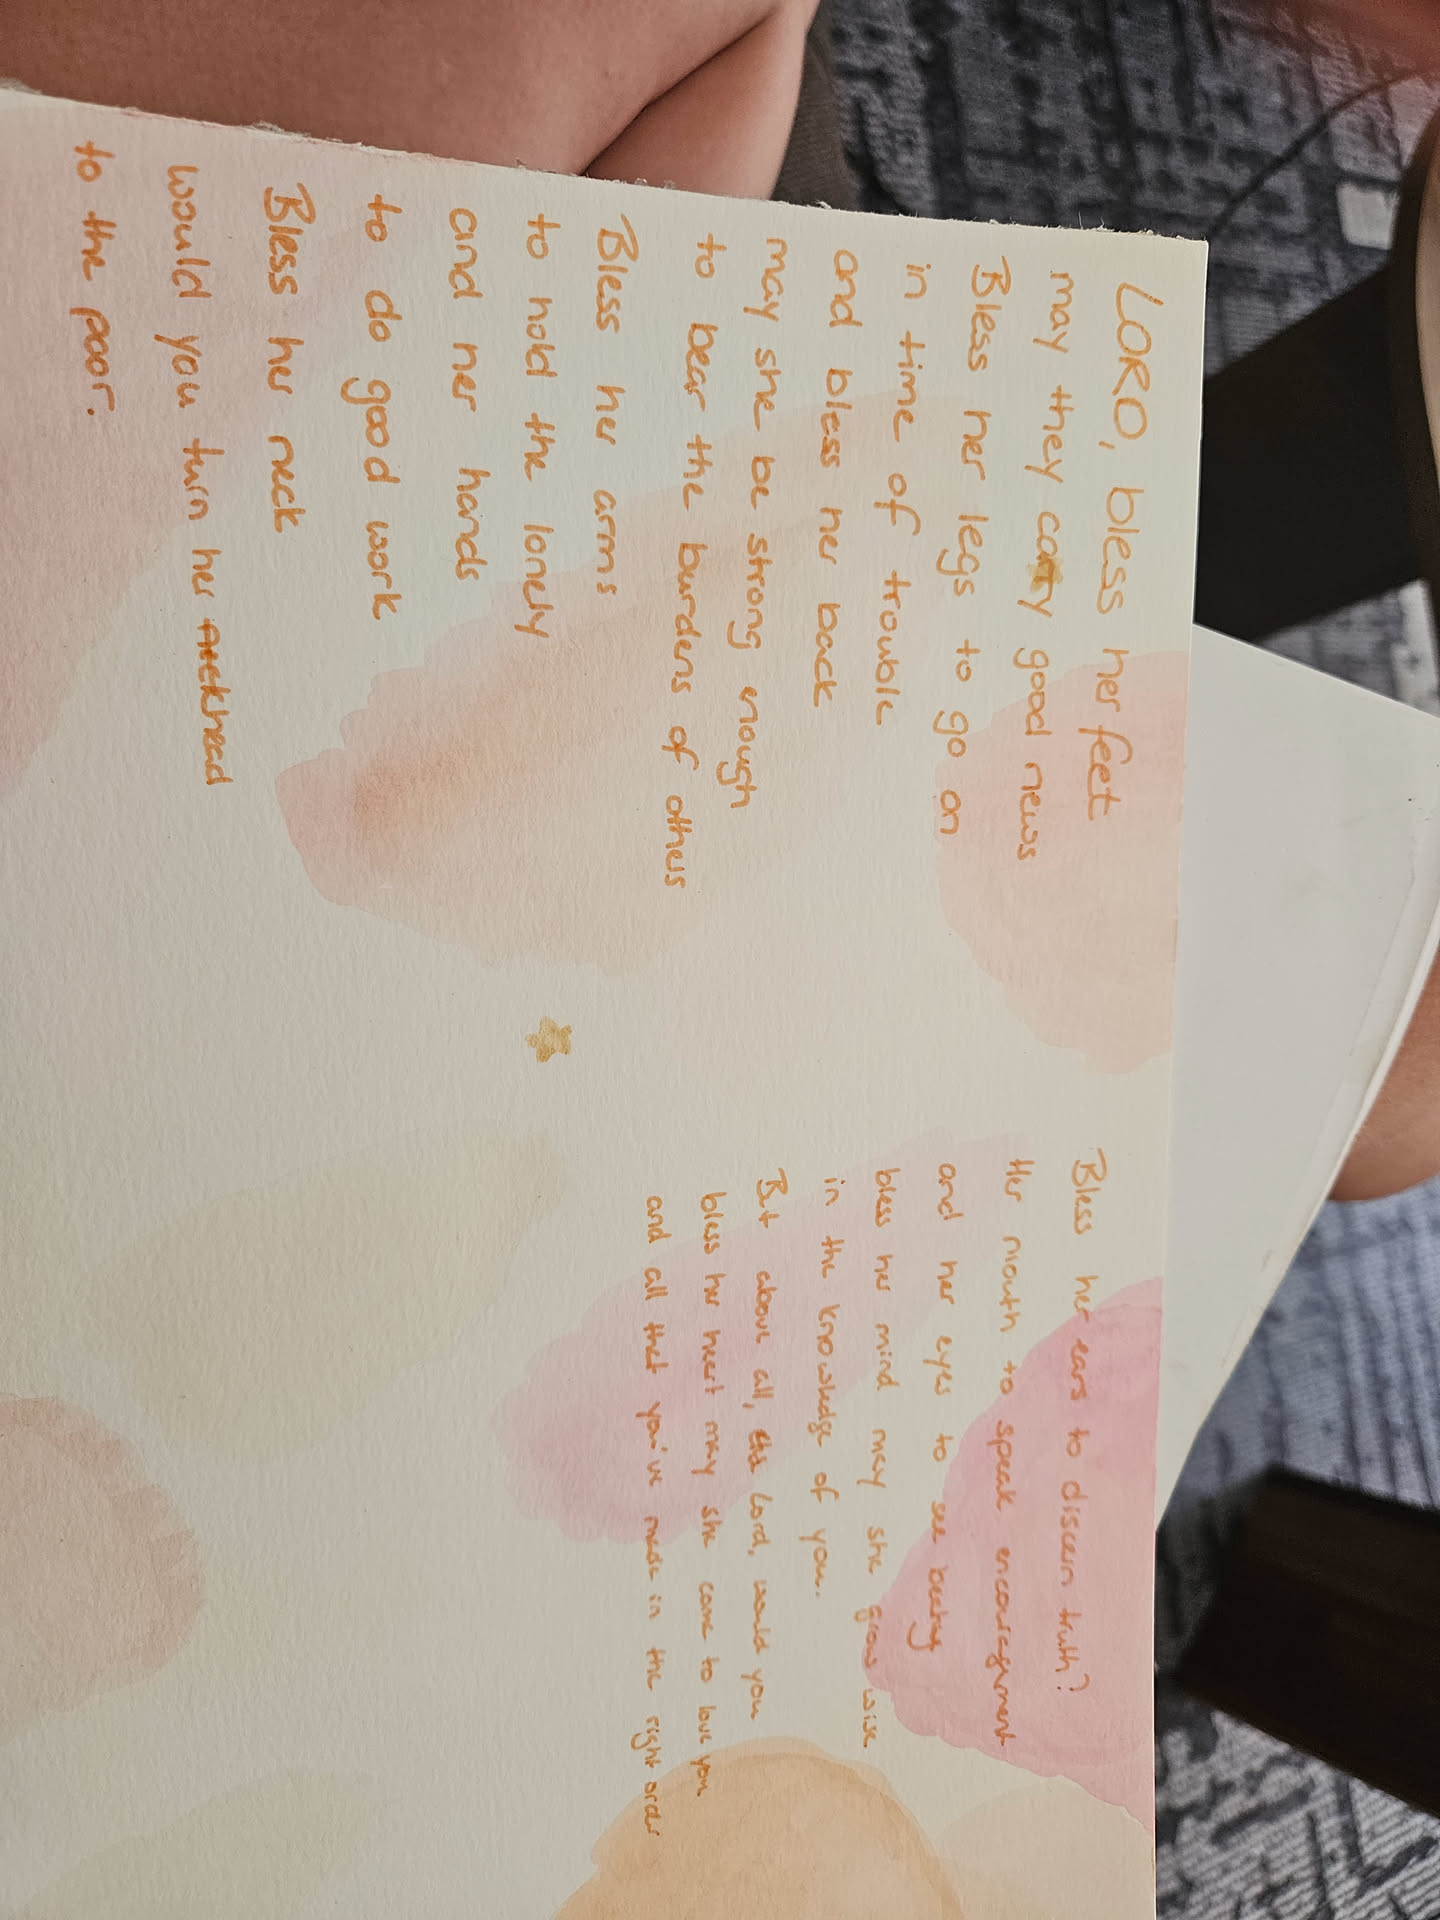 LORD, bless her feet
may they carry good news
Bless her legs to go on
in time of trouble
and bless her back
may she be strong enough
to bear the burdens of others
Bless her arms
to hold the lonely
and her hands
to do good work
Bless her neck
would you turn her head
to the poor.
Bless her ears to discern truth?
Her mouth to speak encouragment
and her eyes to see beauty
bless her mind may she grow wise
in the knowledge of you.
But above all, Lord, would you
bless her heart may she come to love you
and all that you've made in the right order